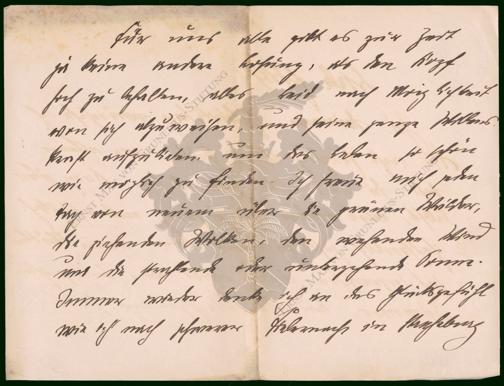 Für uns alle gibt es zur Zeit
ja keine andere Losung, als den Kopf
hoch zu behalten, alles Leid nach Möglichkeit
von sich abzuweisen, und seine ganze Willens
kraft aufzubieten um das Leben so schön
wie möglich zu finden. Ich freue mich jeden
Tag von neuem über die grünen Wälder,
die ziehenden Wolken, den wehenden Wind
und die strahlende oder untergehende Sonne.
Immer wieder denke ich an das Glücksgefühl
wie ich nach schwerer in Straßburg